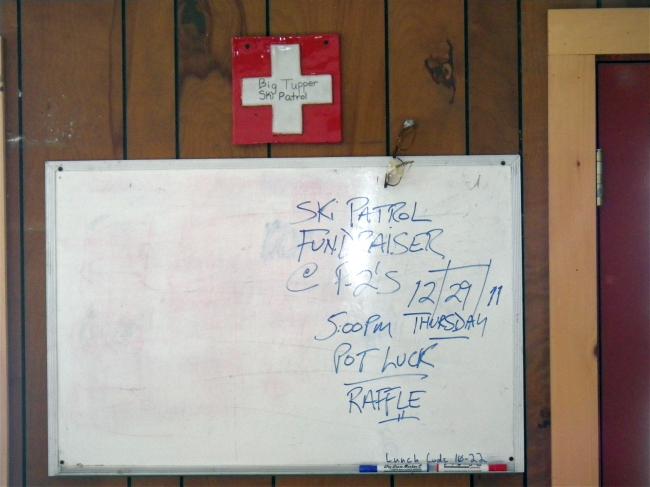 Big Tupper
Ski Patrol
SKi PATROL
FUNDRAISER
@ P-2'S 12/29/11
5:00PM THURSDAY
POT LUCK
RAFFLE
Lunch Code 18-22